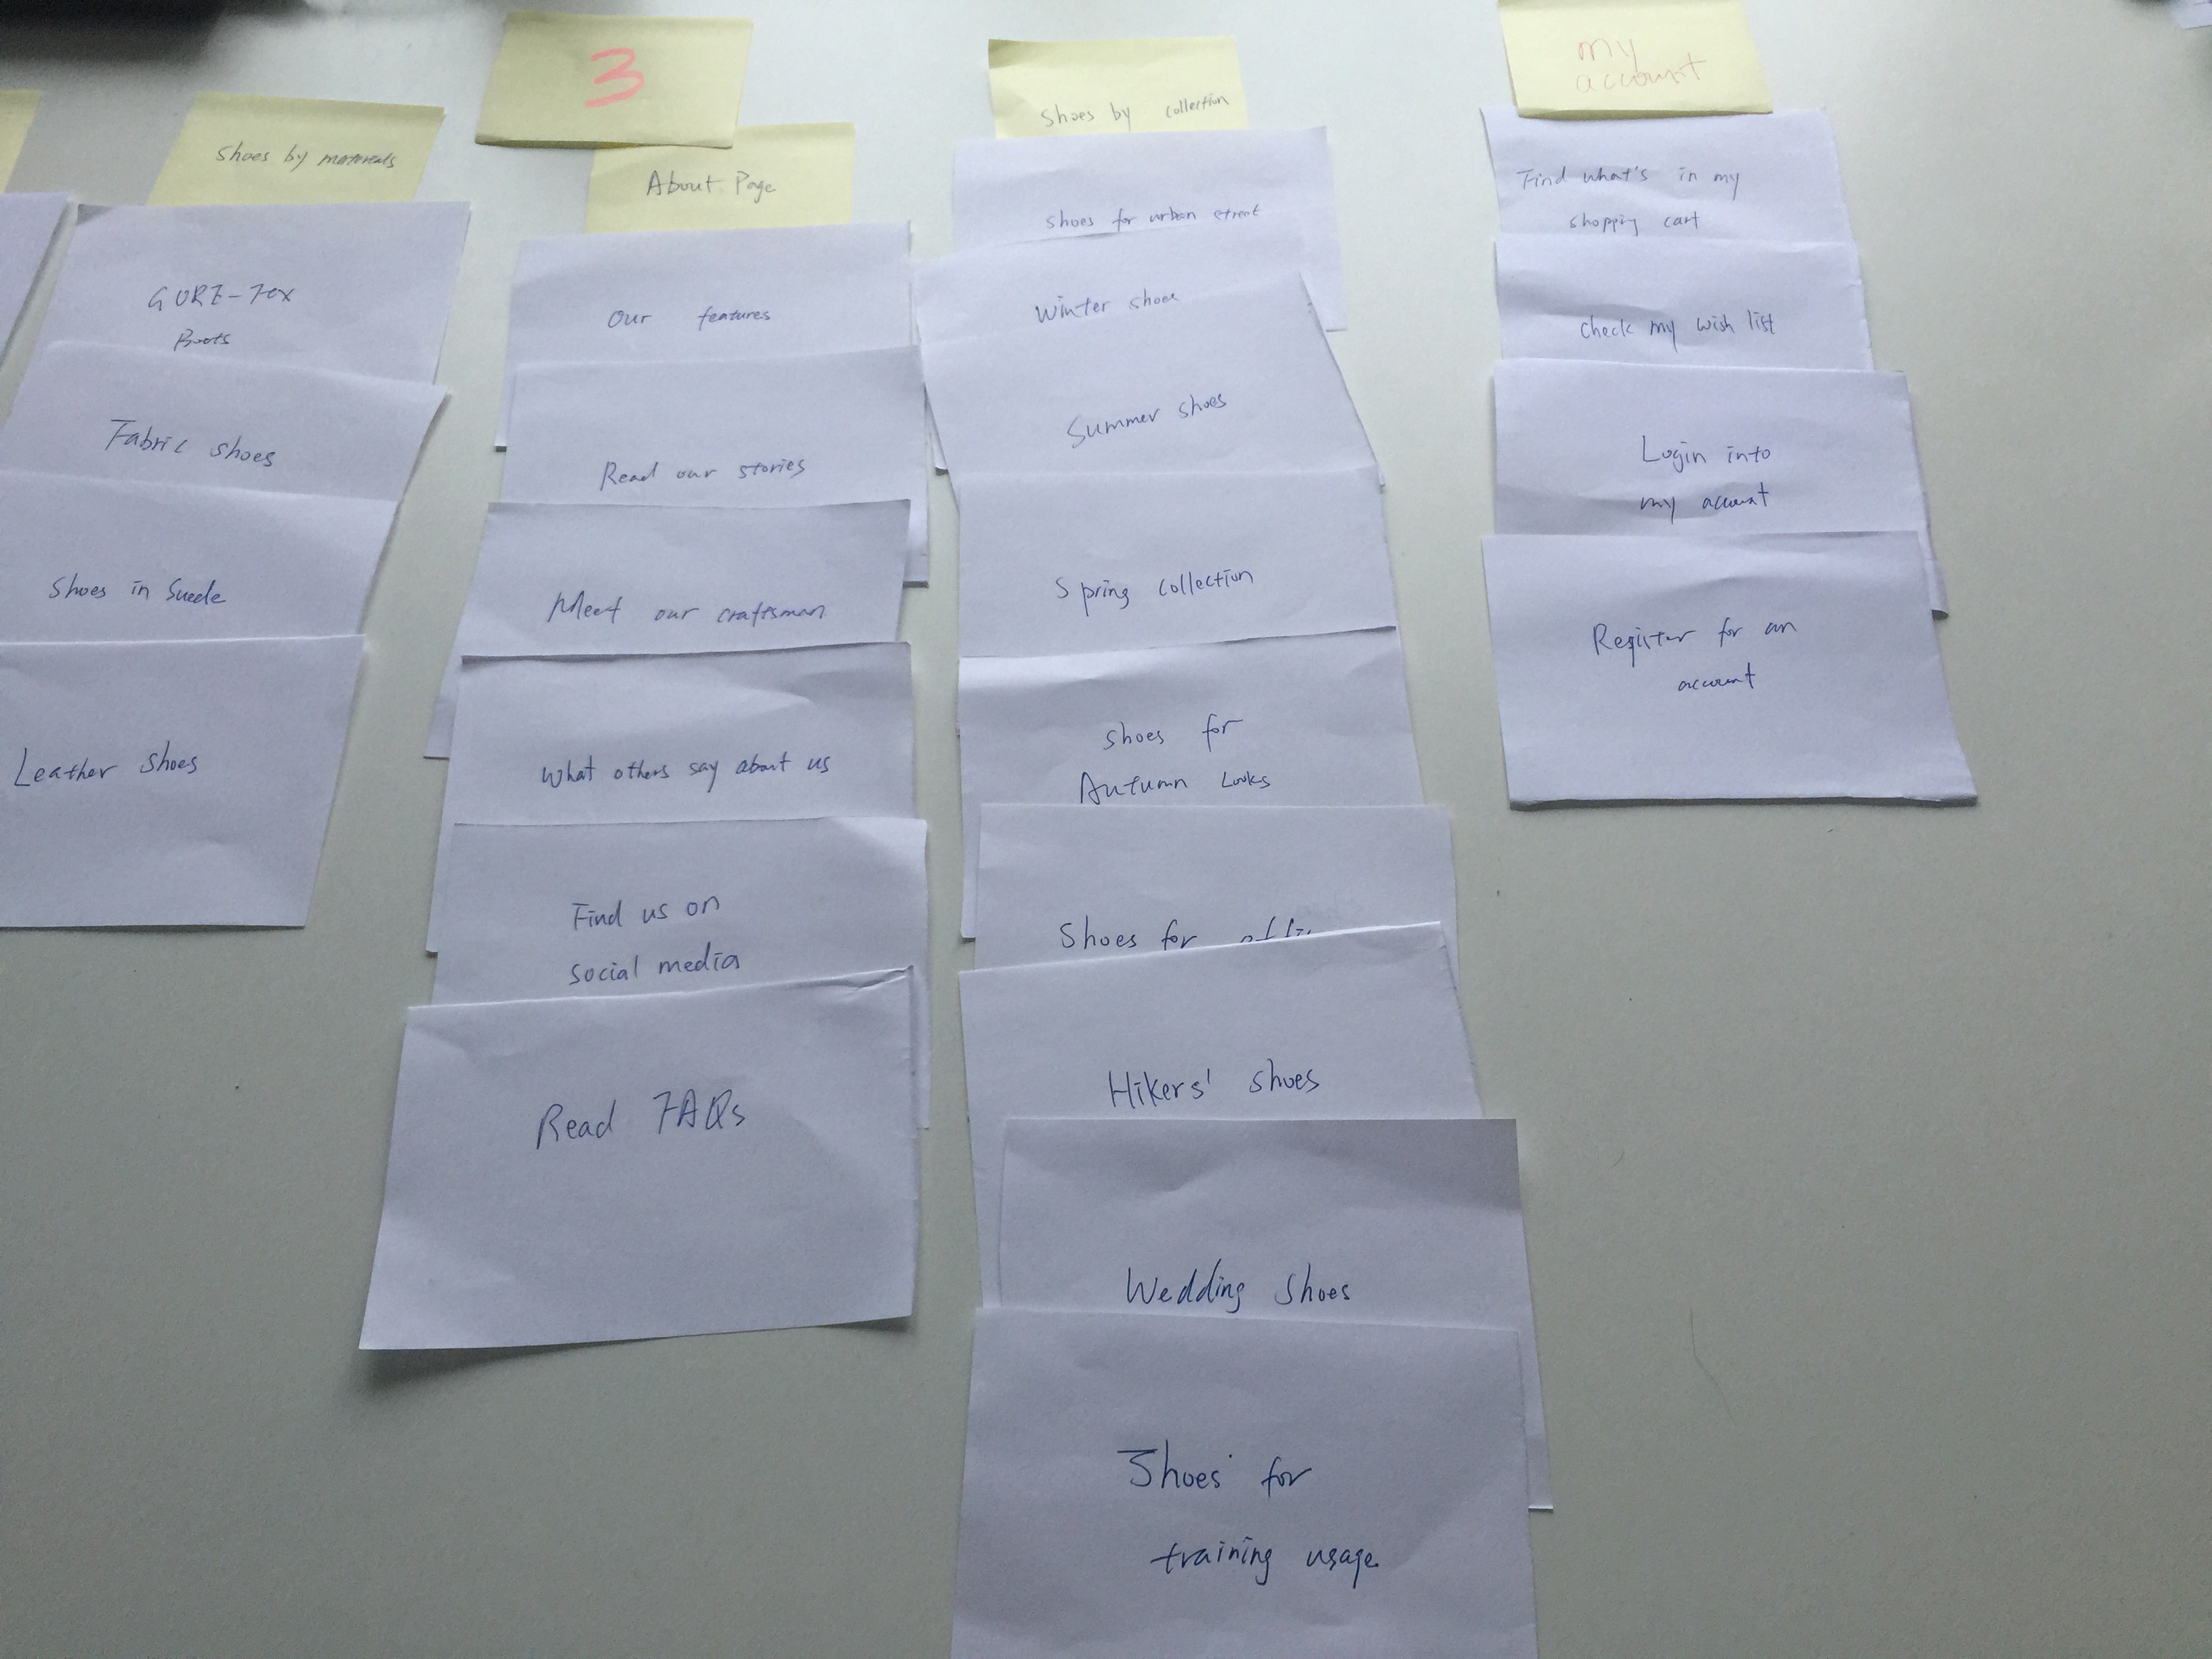 3
Shoes by materials
GORE-TEX
Boots
Fabric shoes
Shoes in Suede
Leather shoes
About Page
Our features
Read our stories
Meet our craftsman
What others say about us
Find us on
social media
Read FAQs
Shoes by collection
shoes for urban
Winter shoes
Summer shoes
Spring collection
Shoes for
Autumn Looks
Shoes for
Hikers' shoes
Wedding shoes
Shoes for
training usage
my
account
Find what's in my
shopping cart
check my wish list
Login into
my account
Register for an
account